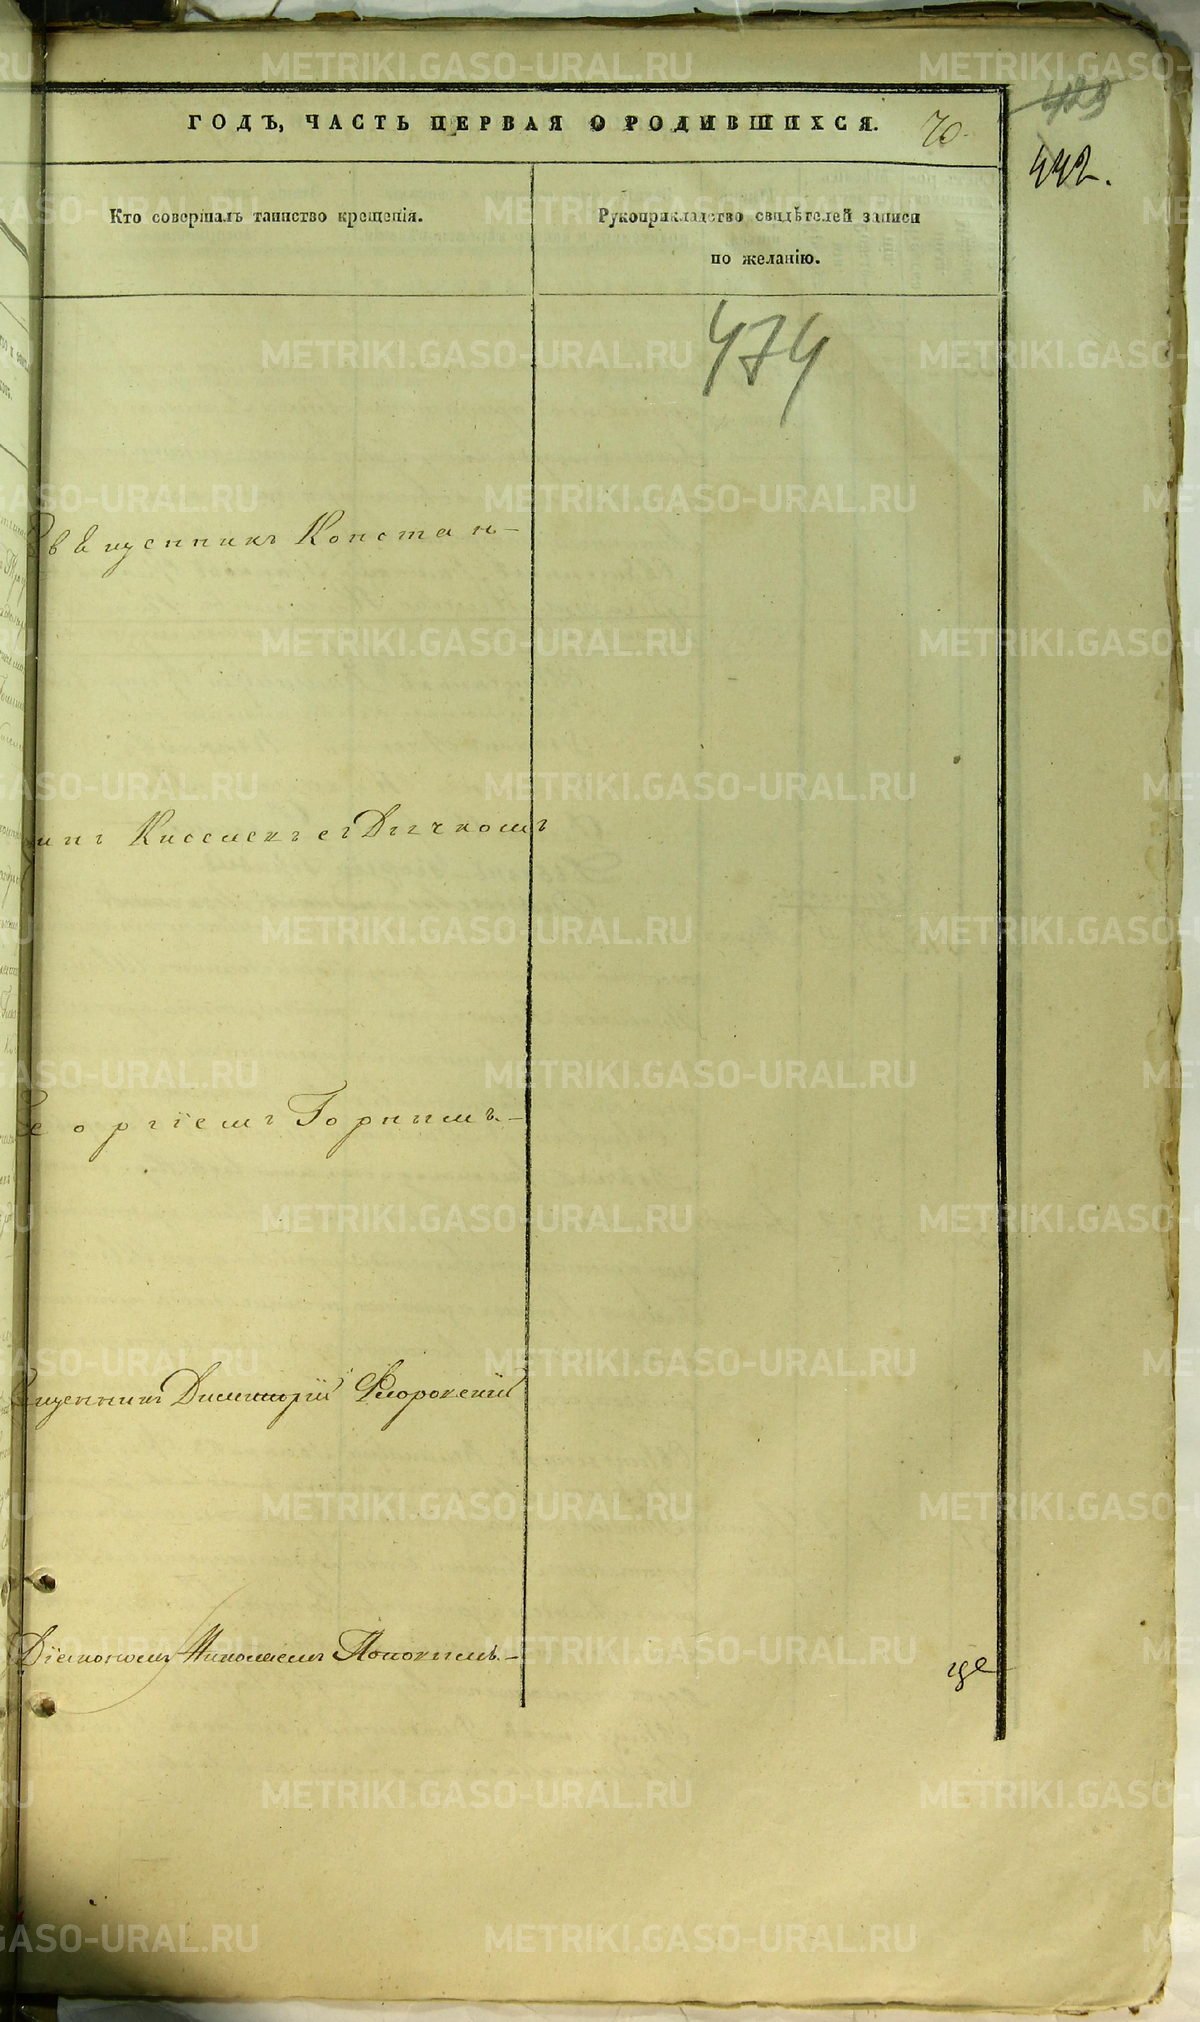 ГОДЪ, ЧАСТЬ ПЕРВАЯ О РОДИВШИХСЯ.
70.
442.
Кто совершалъ таинство крещенія.
Рукоприкладство свидѣтелей записи
по желанію.
474
Священникъ Констан-
тинъ Киселевъ съ Дьячкомъ
Георгіемъ Горнымъ.-
Священникъ Димитрій Флоровскій
Діакономъ Николаемъ Поповымъ.-
це
METRIKI.GASO-URAL.RU